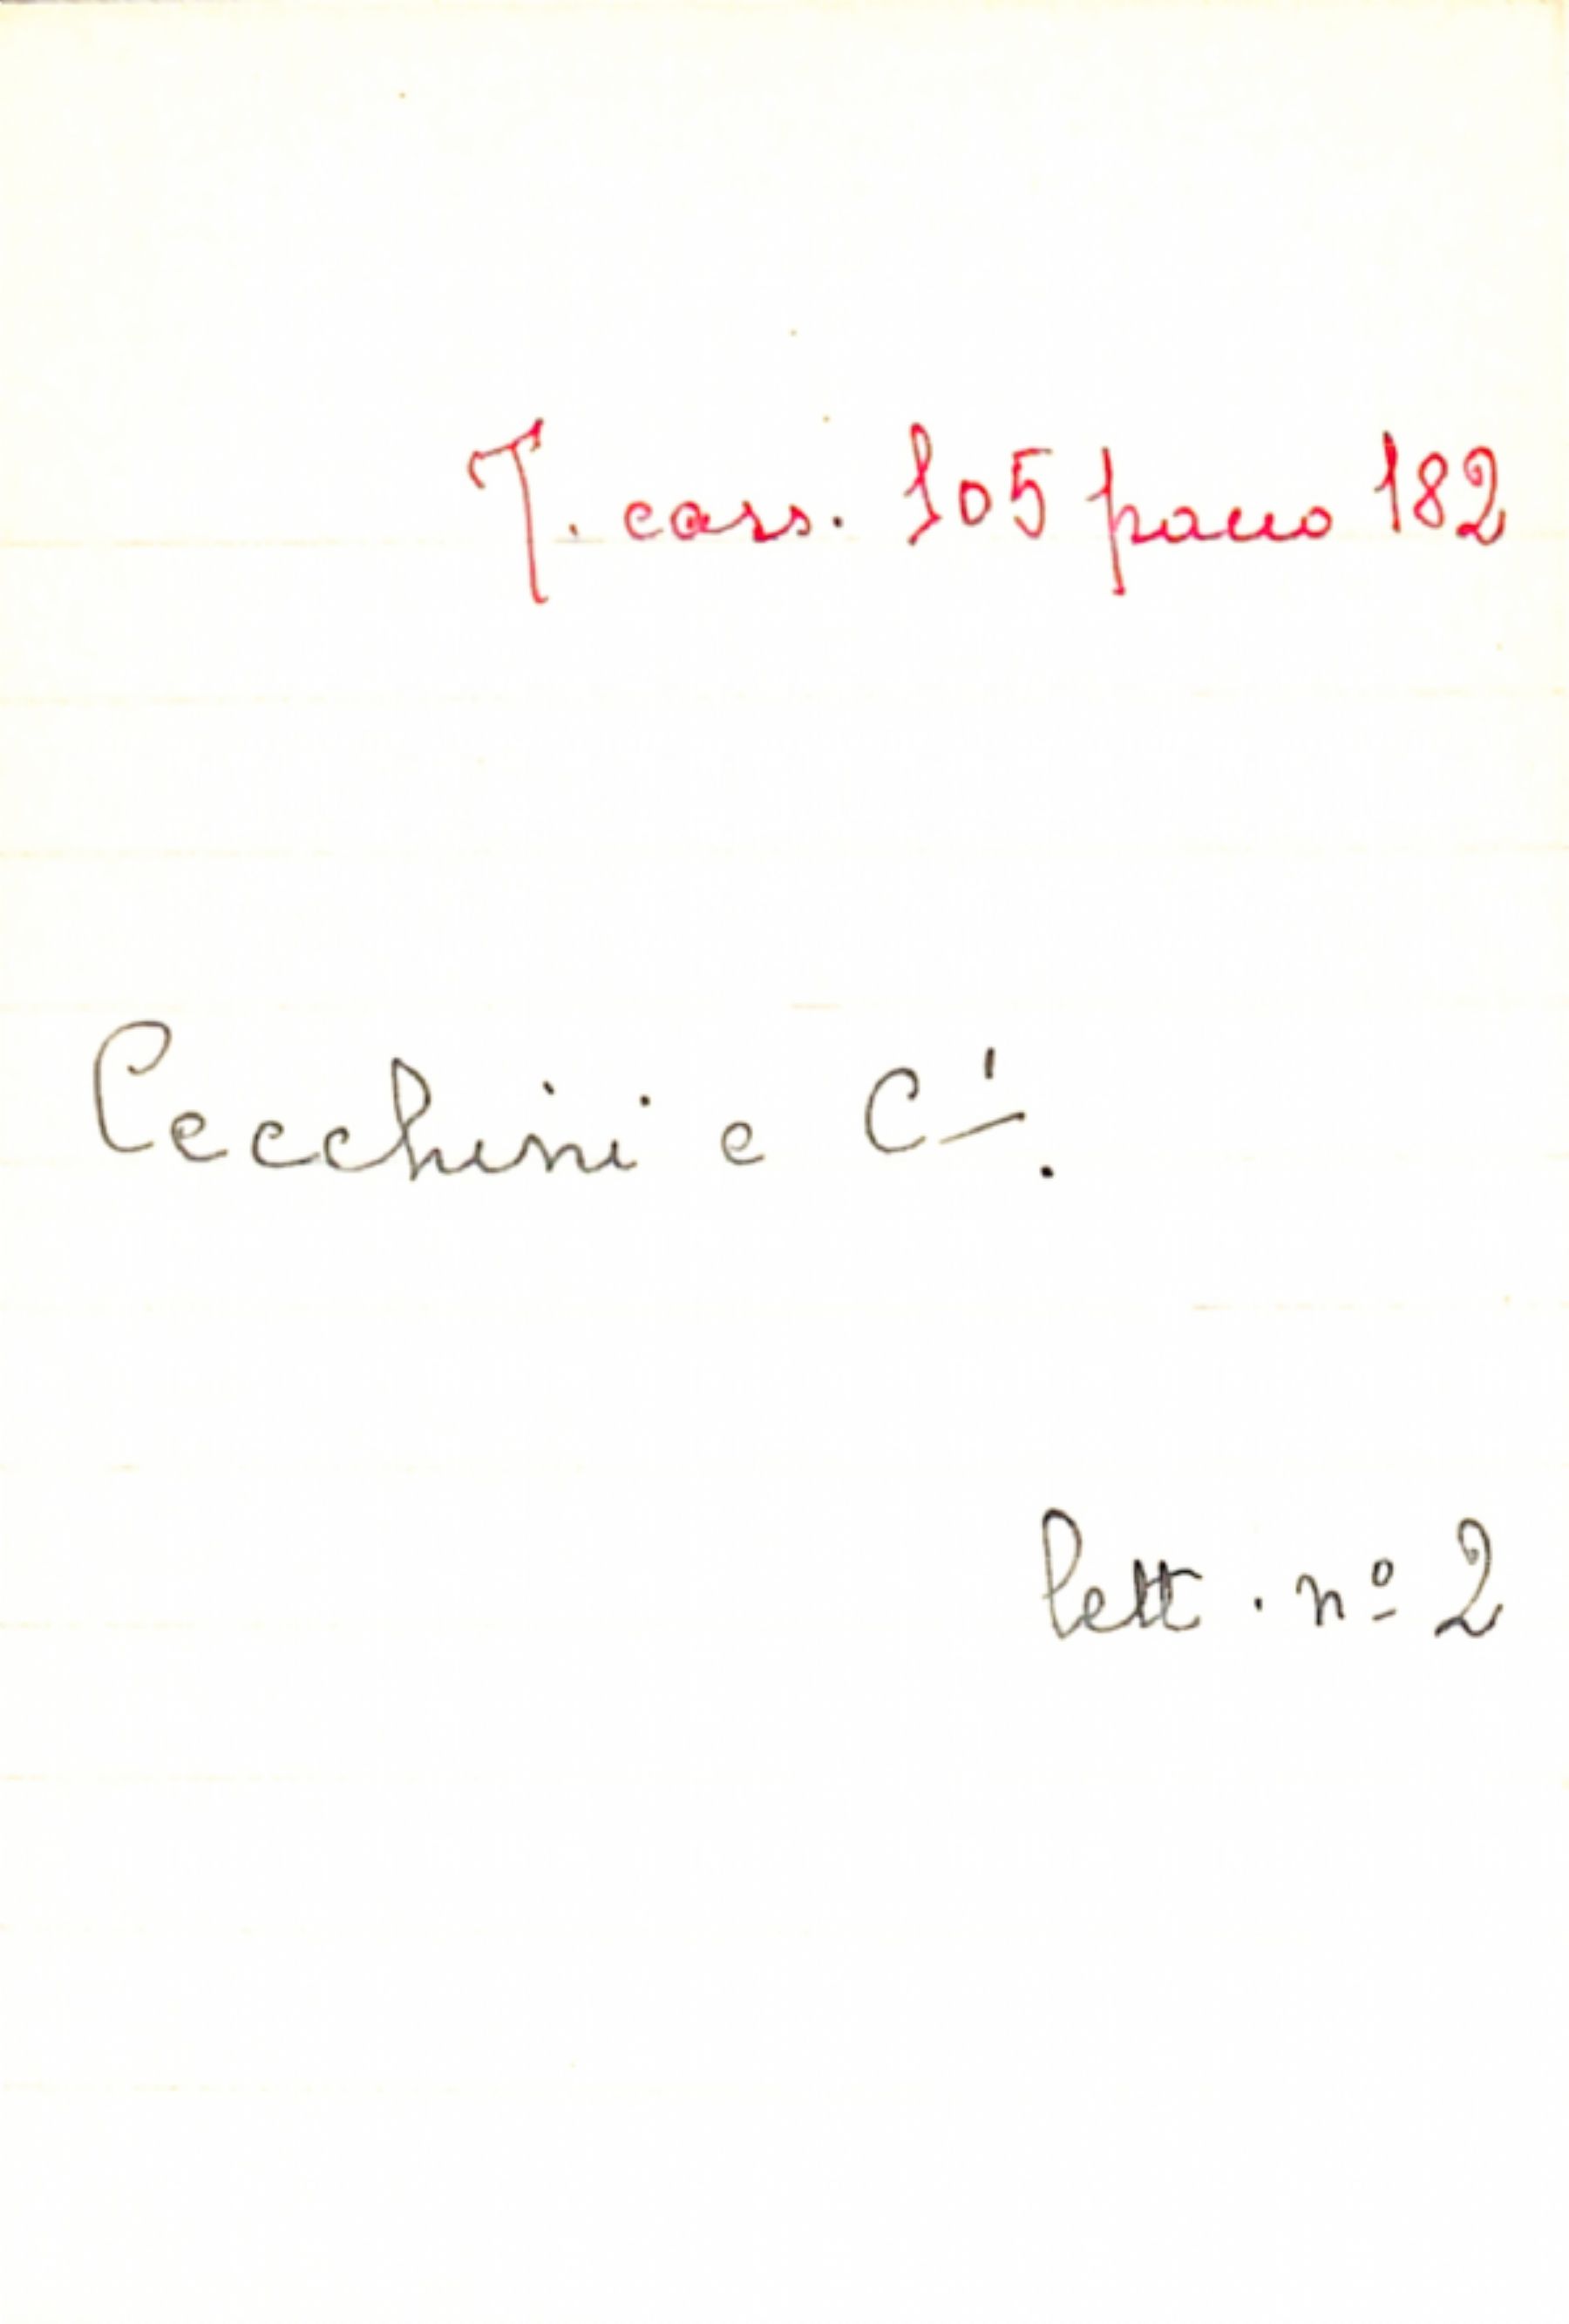 T. cass. 105 pacco 182
Cecchini e C¹.
lett. nº 2